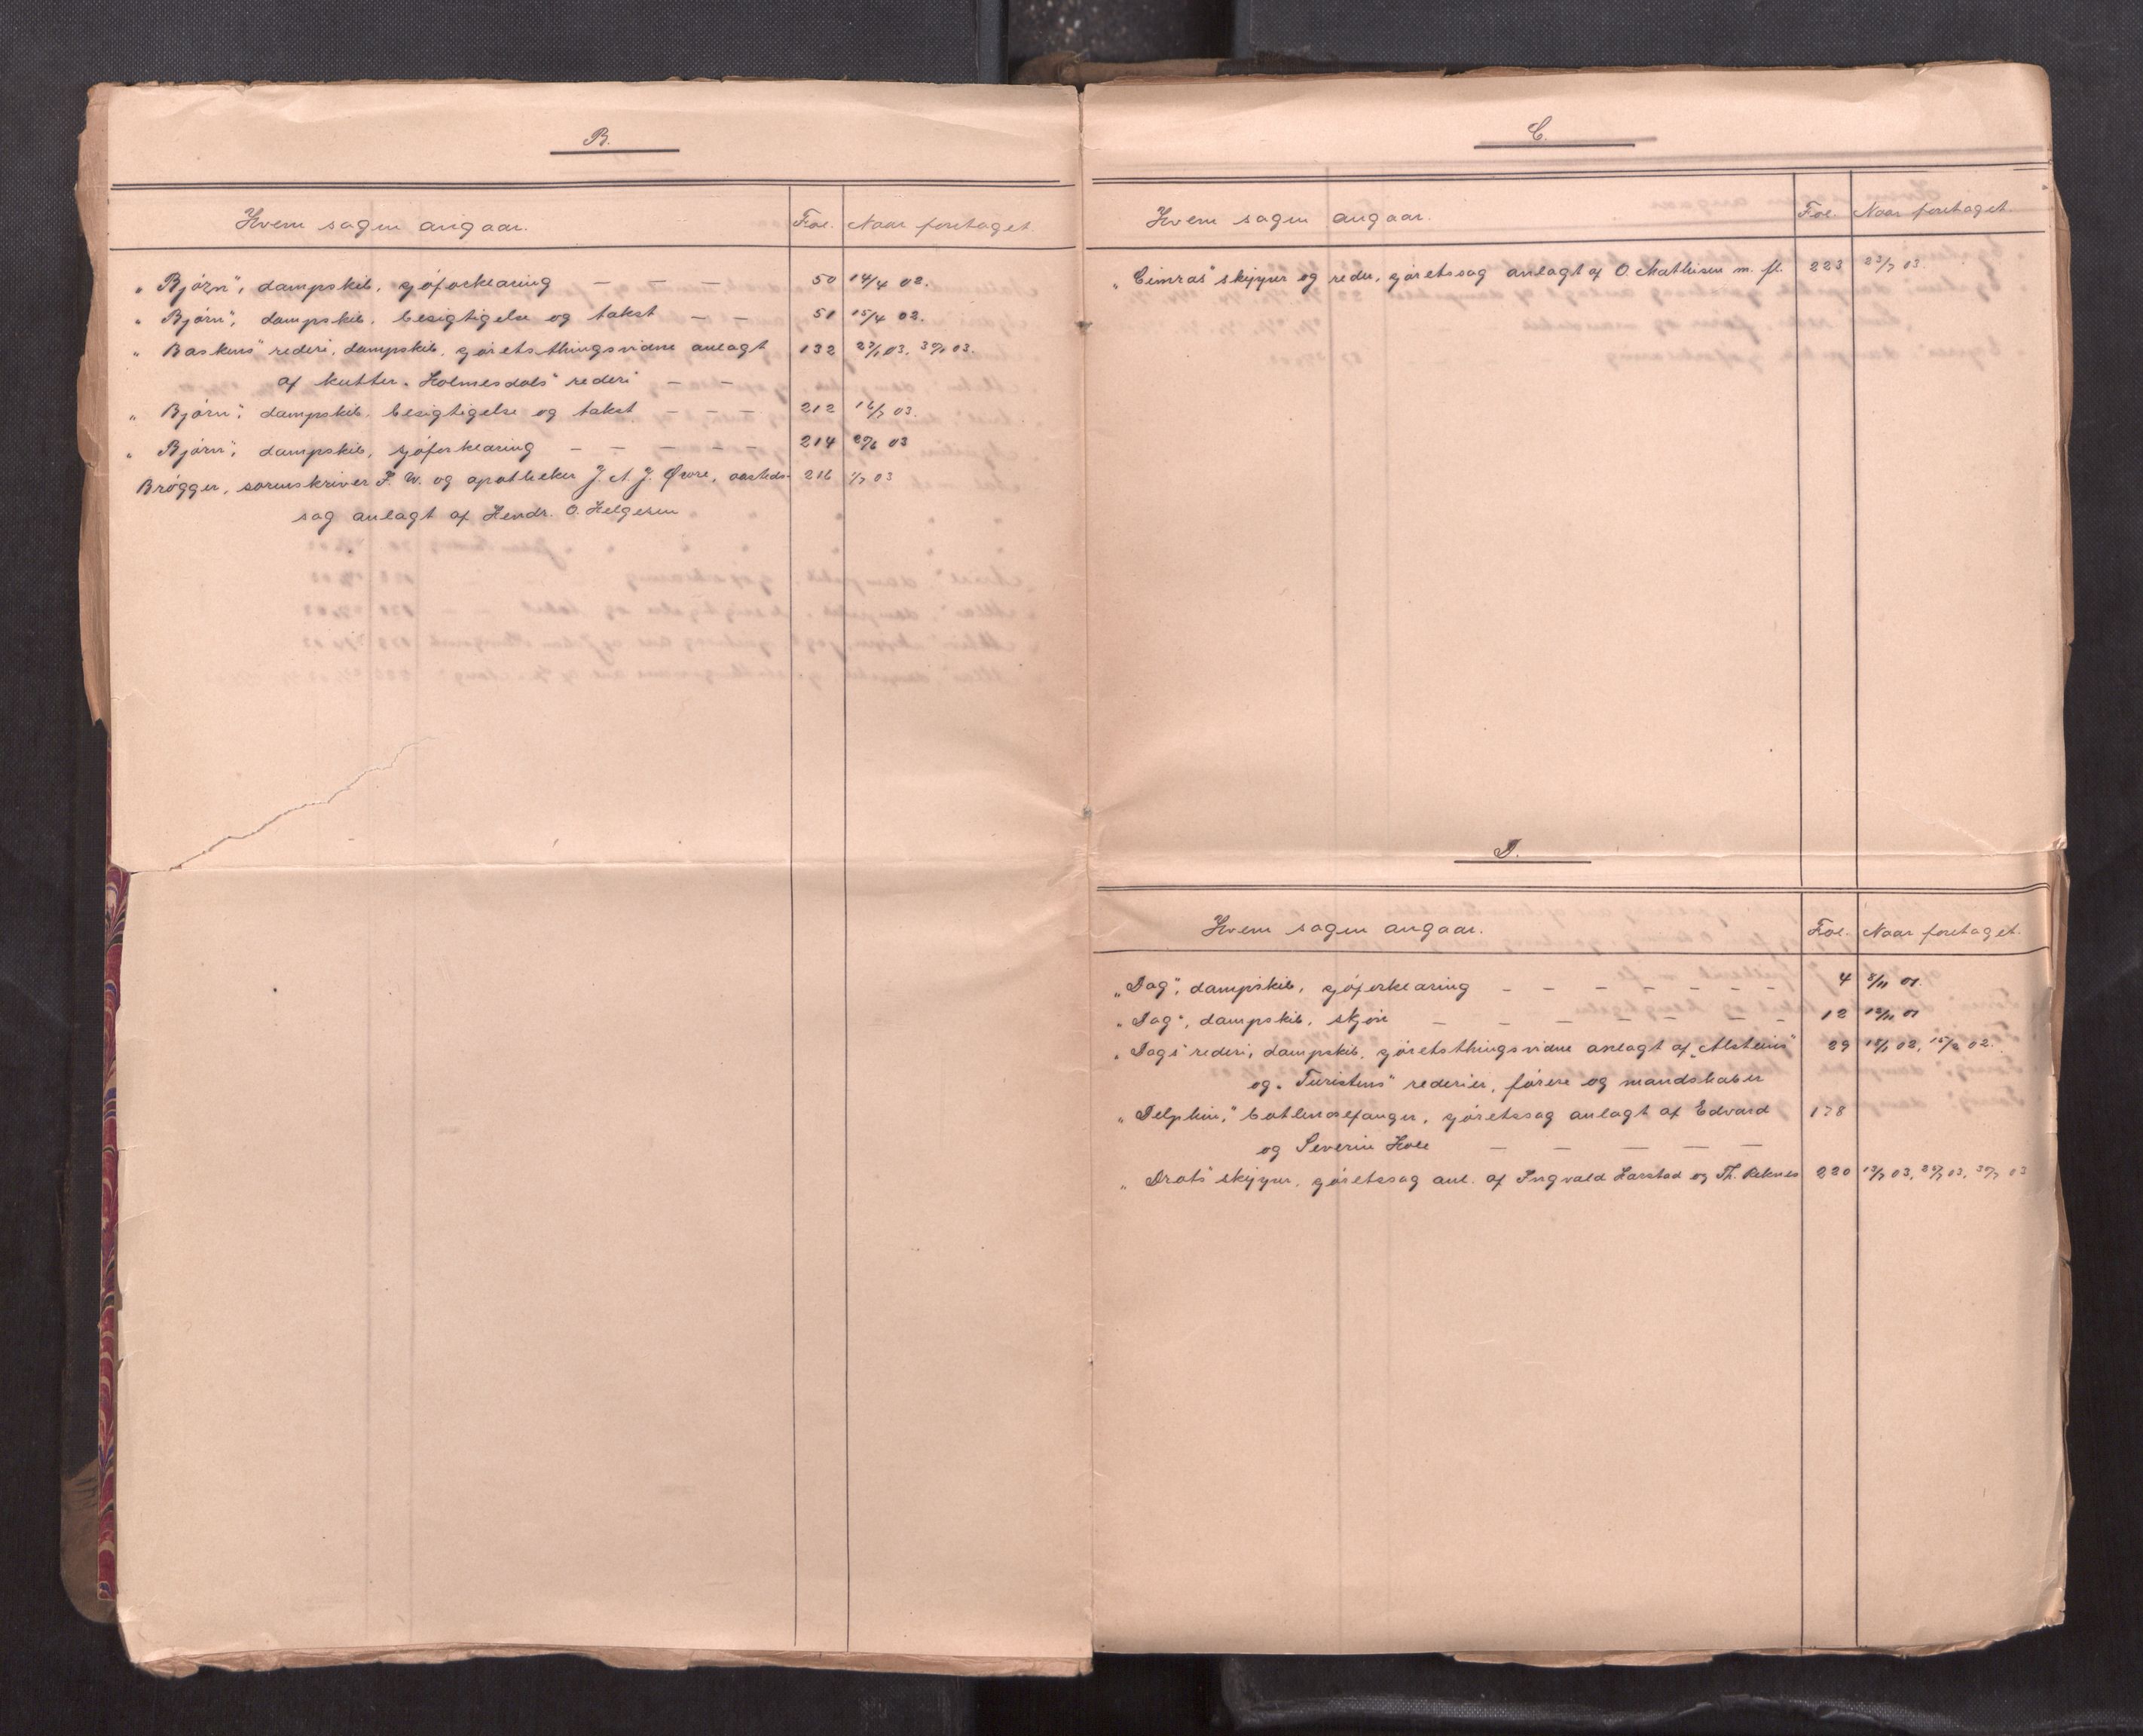 B.
Hvem sagen angaar. Fol. Naar foretaget.
„Bjørn", dampskib, sjøforklaring — — — 50 14/4 02.
„Bjørn", dampskib, besigtigelse og takst — — 51 15/4 02.
„Baskens" rederi, dampskib, sjøretsthingsvidne anlagt 132 23/1 03, 30/1 03.
af kutter „Holmesdals" rederi — —
„Bjørn", dampskib, besigtigelse og takst — — — 212 16/7 03.
„Bjørn", dampskib, sjøforklaring — — — — 214 03
Brøgger, sorenskriver F. W. og apotheker J. A. J. Øwre, aasteds- 216 1/7 03
sag anlagt af Hendr. O. Helgesen
C.
Hvem sagen angaar. Fol. Naar foretaget.
„Cimras" skipper og reder, sjøretssag anlagt af O. Mathisen m. fl. 223 23/7 03.
D.
Hvem sagen angaar. Fol. Naar foretaget.
„Dag", dampskib, sjøforklaring — — — — — — 4 8/11 01.
„Dag", dampskib, skjøn — — — — — — 12 12/11 01
„Dags" rederi, dampskib, sjøretsthingsvidne anlagt af „Alsteins" 29 18/1 02, 15/2 02.
og „Turistens" rederier, førere og mandskaber
„Delphin," bottlenosefanger, sjøretssag anlagt af Edvard 178
og Severin Hole — — — — —
„Drots" skipper, sjøretssag anl. af Ingvald Harstad og Th. Reknes 220 13/7 03, 20/7 03, 30/7 03